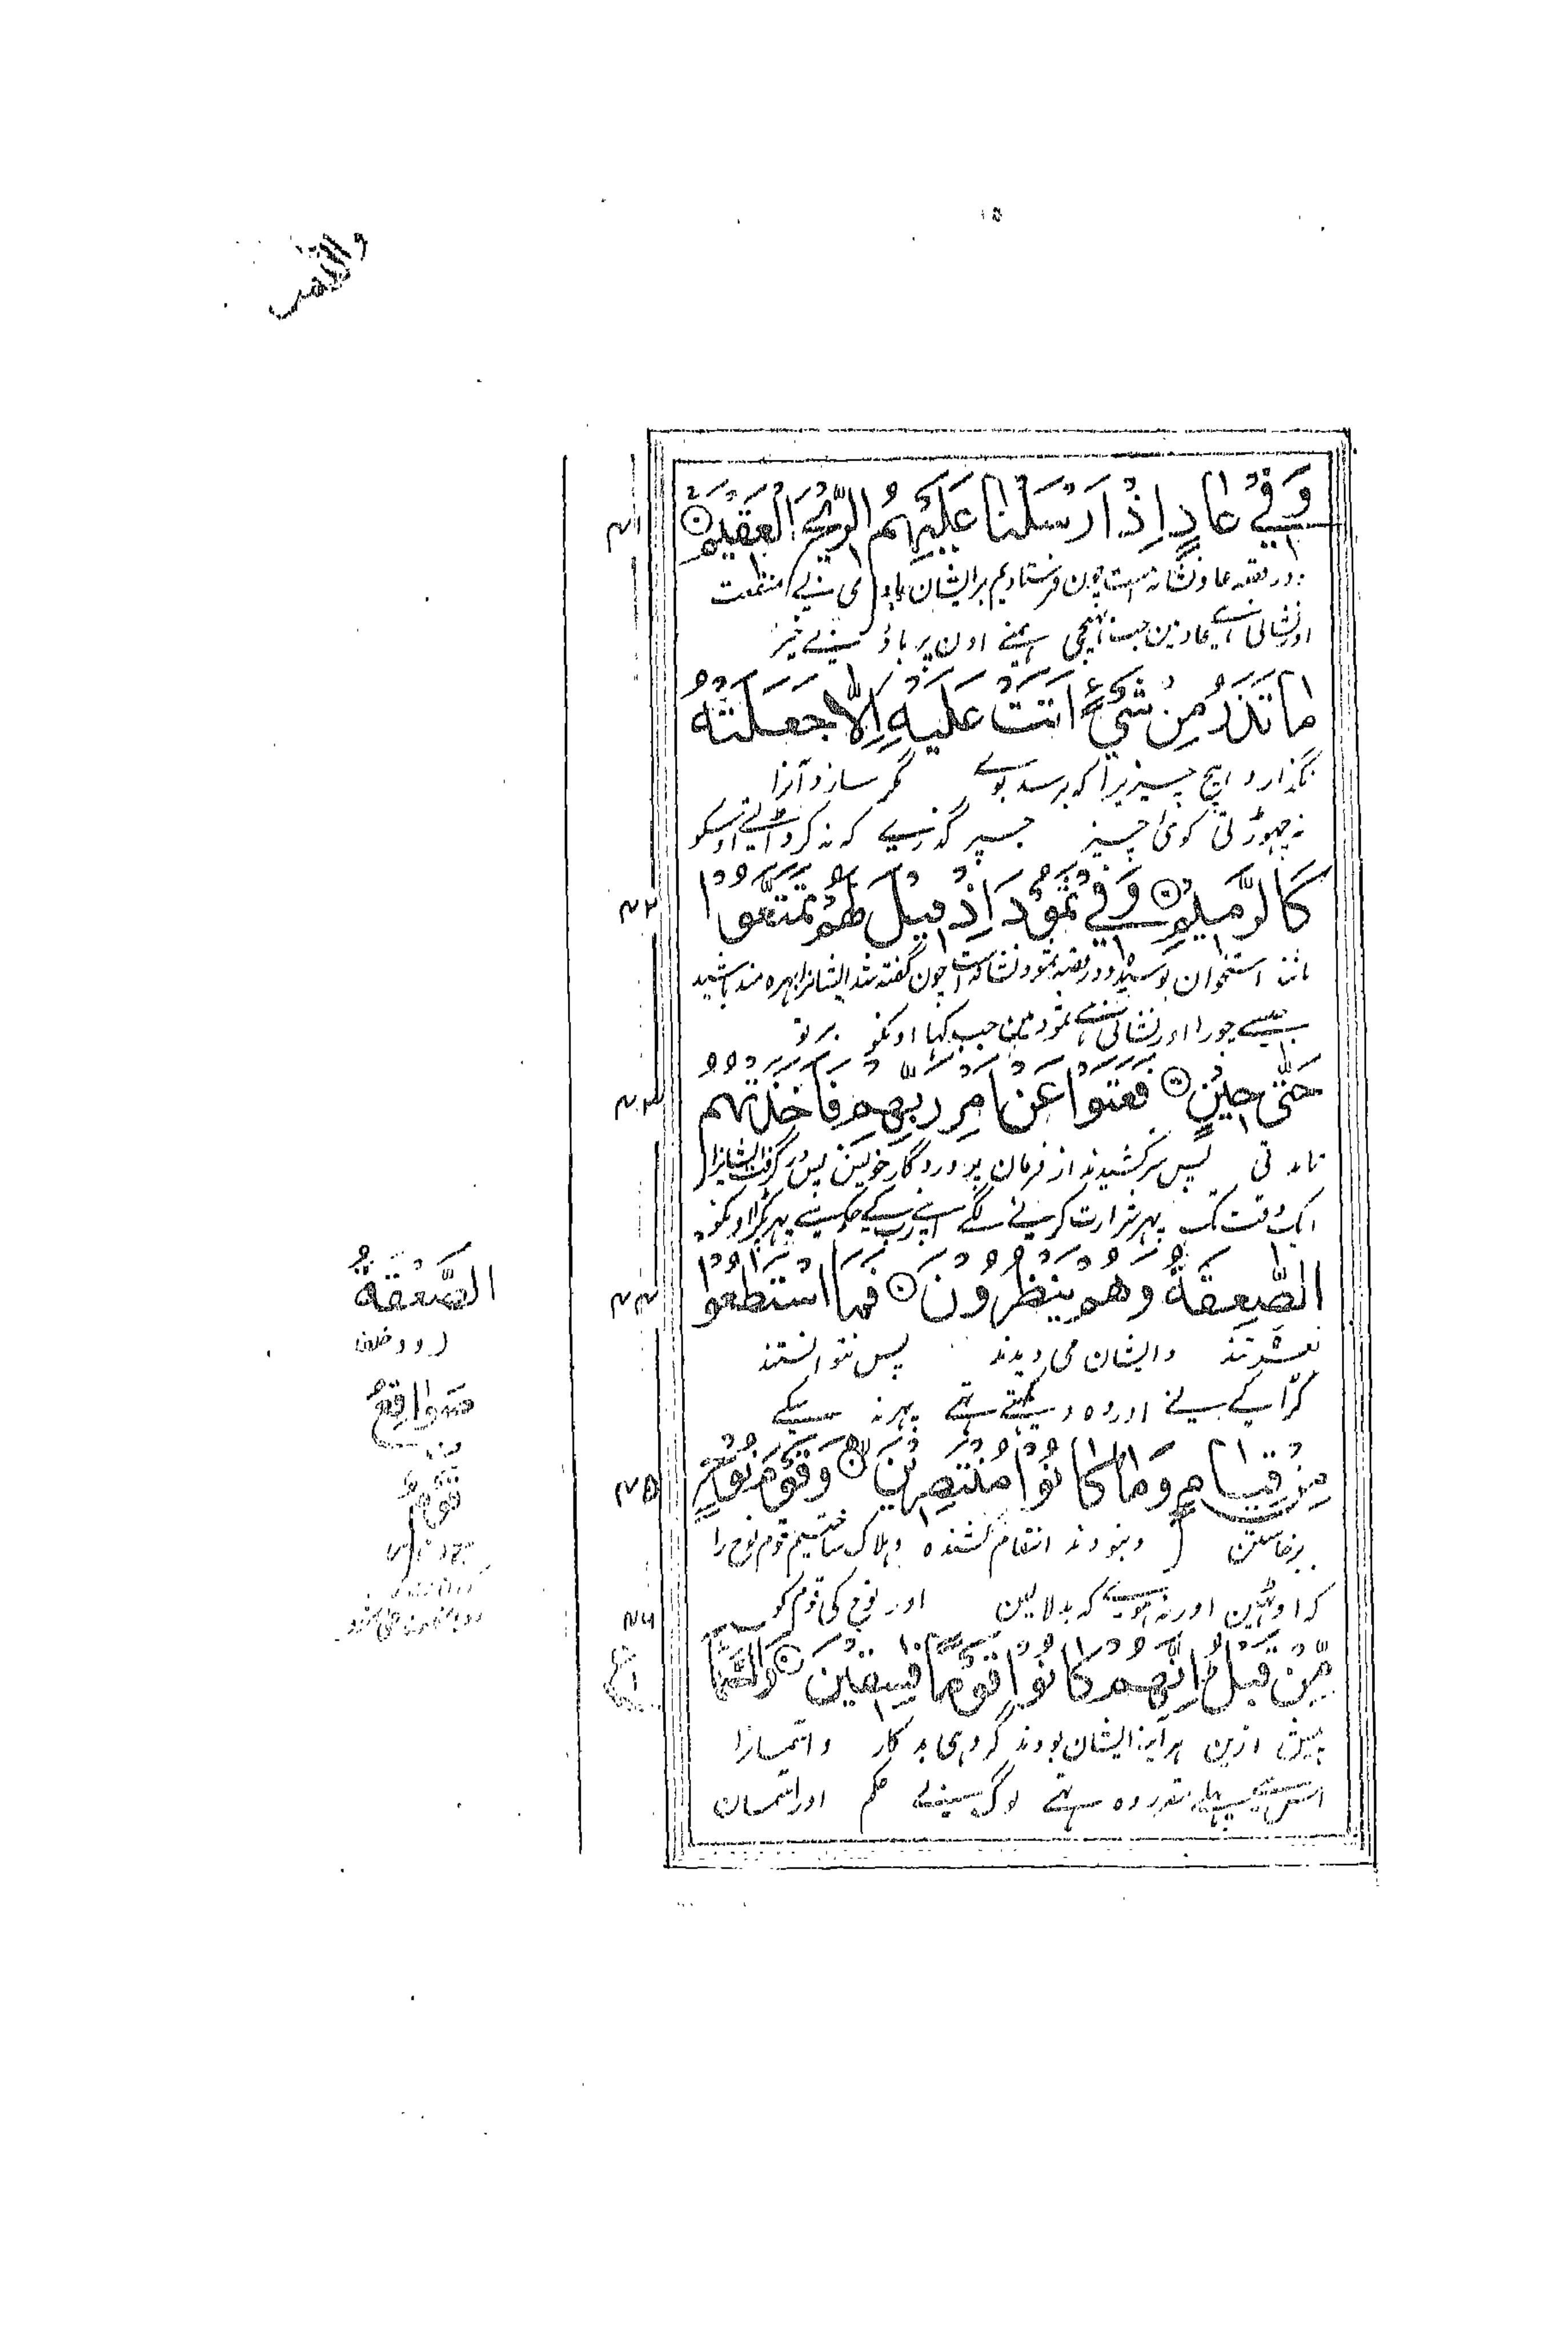 ۱۵
وَفِيْ عَادٍ اِذْ اَرْسَلْنَا عَلَيْهِمُ الرِّيْحَ الْعَقِيْمَ
۴۱
و در قصه عاد نشانه است چون فرستادیم بر ایشان بادی بے منفعت
اور نشانی ہے عاد مین جب بھیجی ہمنے اون پر باؤ بے خیر
مَا تَذَرُ مِنْ شَيْءٍ اَتَتْ عَلَيْهِ اِلَّا جَعَلَتْهُ
نگذارد هیچ چیزیرا که برسد بوے مگر سازد آنرا
نہ چھوڑتی کوئی چیز جسپر گذرے کہ نہ کر ڈالتی اوسکو
كَالرَّمِيْمِ وَفِيْ ثَمُوْدَ اِذْ قِيْلَ لَهُمْ تَمَتَّعُوْا
۴۲
مانند استخوان بوسیده و در قصه ثمود نشانه است چون گفته شد ایشانرا بهره مند باشید
جیسے چورا اور نشانی ہے ثمود مین جب کہا اونکو برتو
حَتّٰى حِيْنٍ فَعَتَوْا عَنْ اَمْرِ رَبِّهِمْ فَاَخَذَتْهُمُ
۴۳
تا مدتی پس سرکشیدند از فرمان پروردگار خویش پس در گرفت ایشانرا
ایک وقت تک پہر شرارت کرنے لگے اپنے رب کے حکم سے پہر پکڑا اونکو
الصّٰعِقَةُ وَهُمْ يَنْظُرُوْنَ فَمَا اسْتَطٰعُوْا
۴۴
وایشان می دیدند پس نتوانستند
کڑاکے نے اور وہ دیکھتے تھے پہر نہ سکے
مِنْ قِيَامٍ وَمَا كَانُوْا مُنْتَصِرِيْنَ وَقَوْمَ نُوْحٍ
۴۵
برخاستن و نبودند انتقام کشنده و هلاک ساختیم قوم نوح را
کہ اوٹھین اور نہ ہوئے کہ بدلا لین اور نوح کی قوم کو
۴۶
مِّنْ قَبْلُ اِنَّهُمْ كَانُوْا قَوْمًا فٰسِقِيْنَ وَالسَّمَآءَ
پیش ازین هر آینه ایشان بودند گروهی بدکار و آسمانرا
اس سے پہلے مقرر وہ تھے لوگ بے حکم اور آسمان
الصَّعْقَةُ
صَوَاقِعُ
قَوْمِ